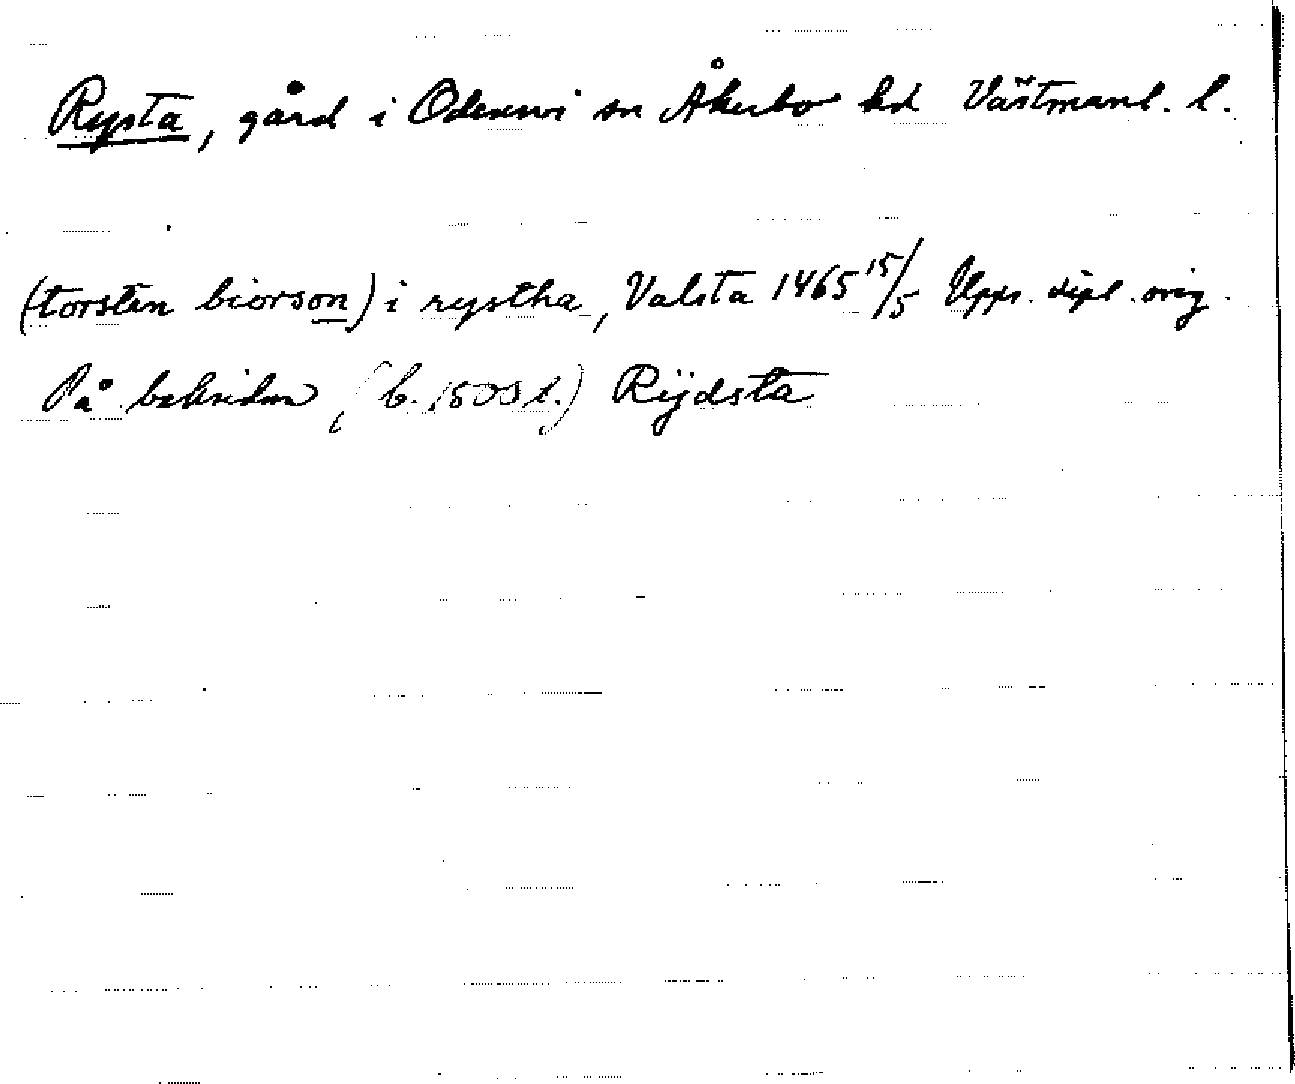 Rysta, gård i Odensvi sn Åkerbo hd Västmanl. l.
(torsten biorson) i rystha, Valsta 1465 15/5 Upps. dipl. orig.
På baksidan (b. 1500 t.) Rijdsta